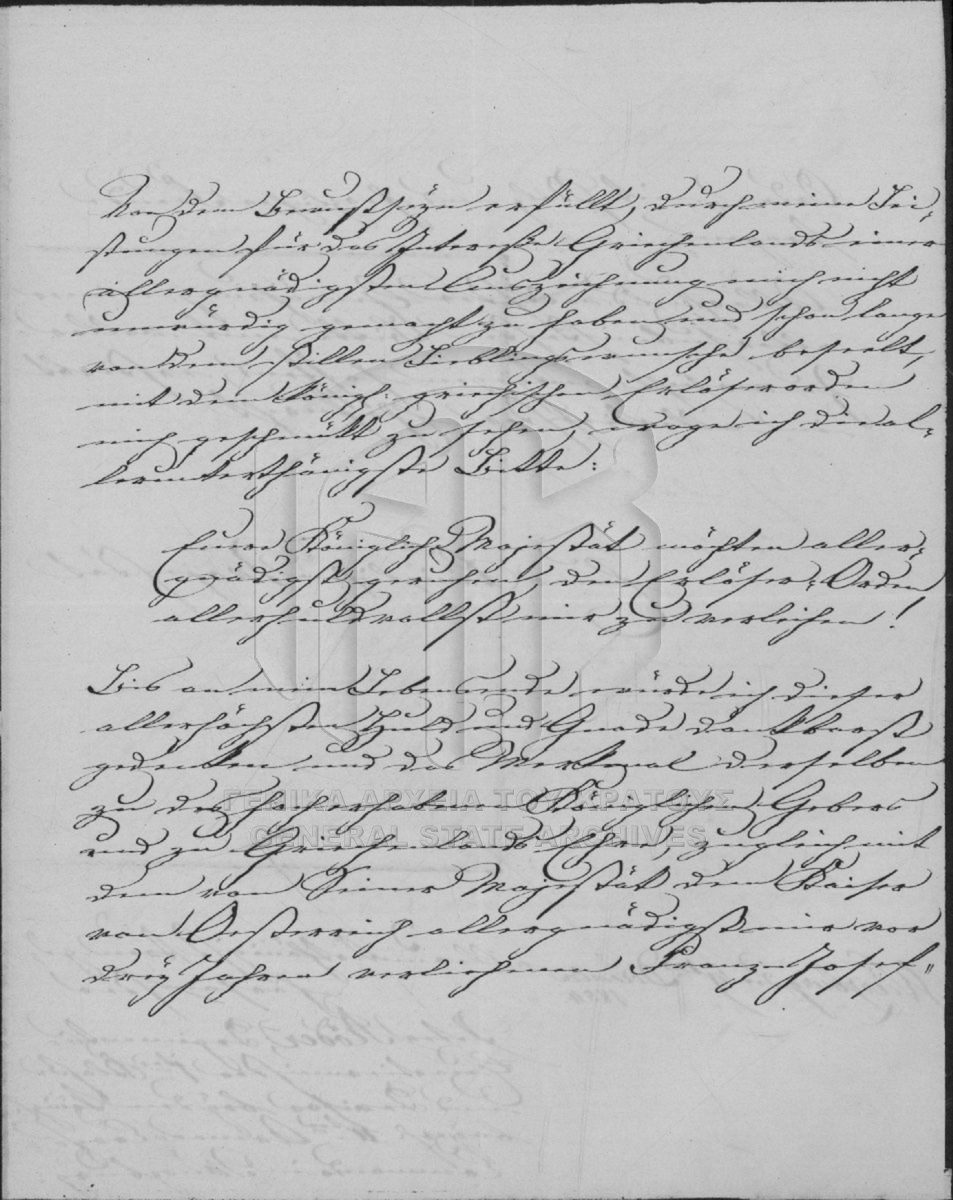 Von dem Bewußtseyn erfüllt, durch meine Lei-
stungen für das Interesse Griechenlands einer
allergnädigsten Auszeichnung mich nicht
unwürdig gemacht zu haben und schon lange
von dem stillen Lieblingswunsche beseelt,
mit dem königl: griechischen Erlöserorden
mich geschmückt zu sehen, wage ich die al-
lerunterthänigste Bitte:
Eure Königliche Majestät möchten aller-
gnädigst geruhen, den Erlöser-Orden
allerhuldvollst mir zu verleihen!
Bis an mein Lebensende würde ich dieser
allerhöchsten Huld und Gnade dankbarst
gedenken und das Merkmal derselben
zu des hocherhabenen Königlichen Gebers
und zu Griechenlands Ehre, zugleich mit
dem von Seiner Majestät dem Kaiser
von Oesterreich allergnädigst mir vor
drey Jahren verliehenen Franz-Josef-
ΓΕΝΙΚΑ ΑΡΧΕΙΑ ΤΟΥ ΚΡΑΤΟΥΣ
GENERAL STATE ARCHIVES